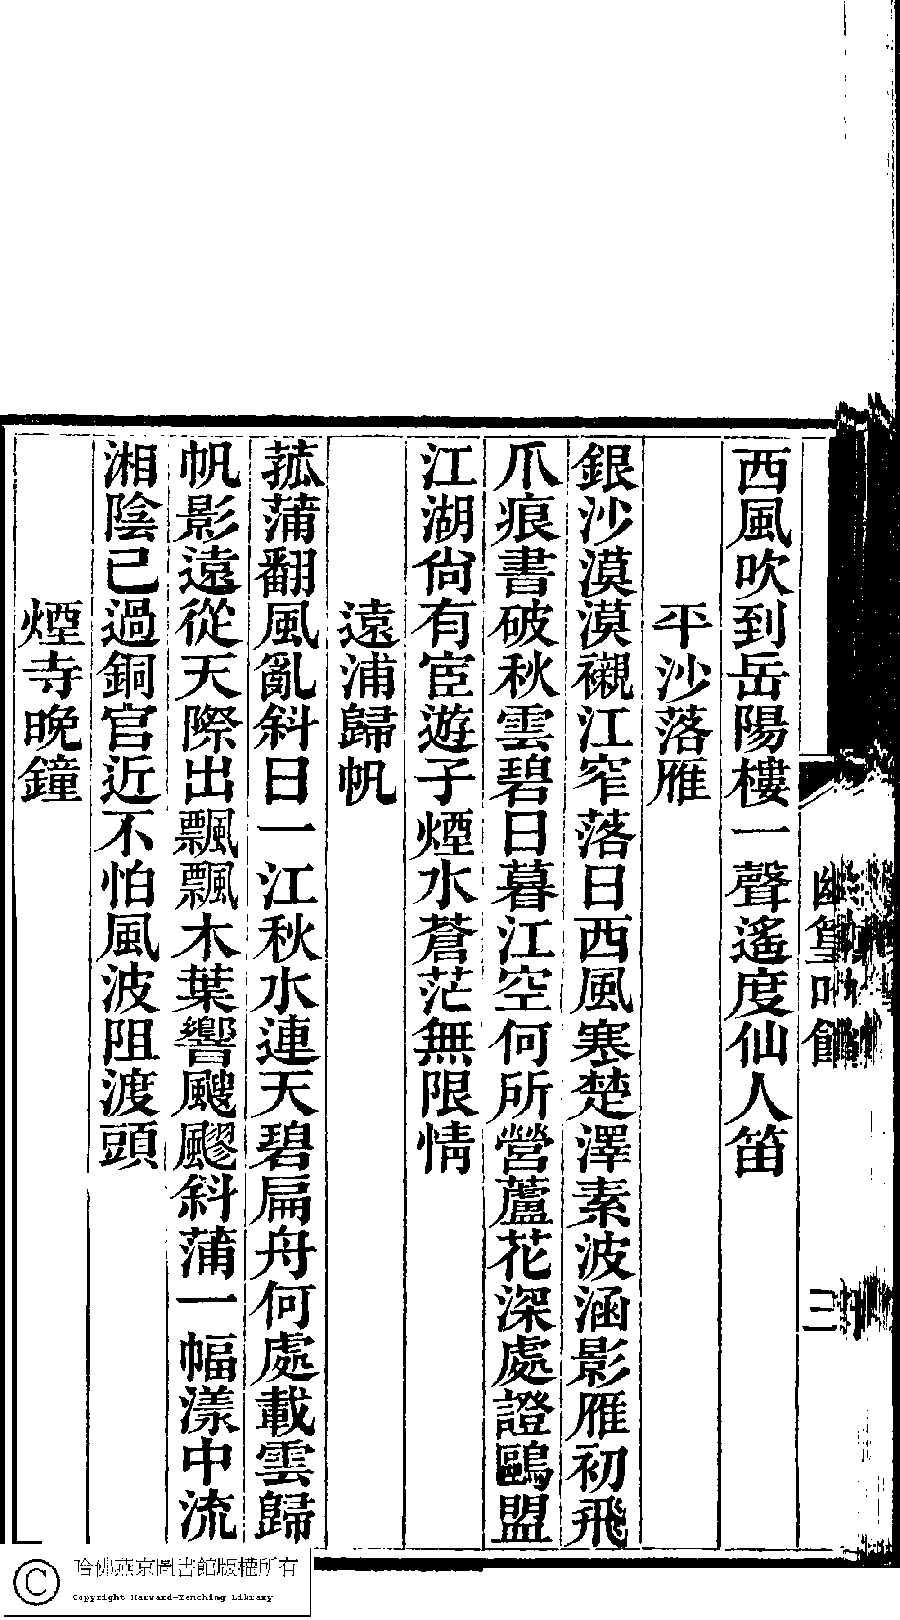 西風吹到岳陽樓一聲遙度仙人笛
平沙落雁
銀沙漠漠襯江窄落日西風寒楚澤素波涵影雁初飛
爪痕書破秋雲碧日暮江空何所營蘆花深處證鷗盟
江湖尙有宦遊子煙水蒼茫無限情
遠浦歸帆
菰蒲翻風亂斜日一江秋水連天碧扁舟何處載雲歸
帆影遠從天際出飄飄木葉響颼飂斜蒲一幅漾中流
湘陰已過銅官近不怕風波阻渡頭
煙寺晚鐘
三
哈佛燕京圖書館版權所有
Copyright Harvard-Yenching Library